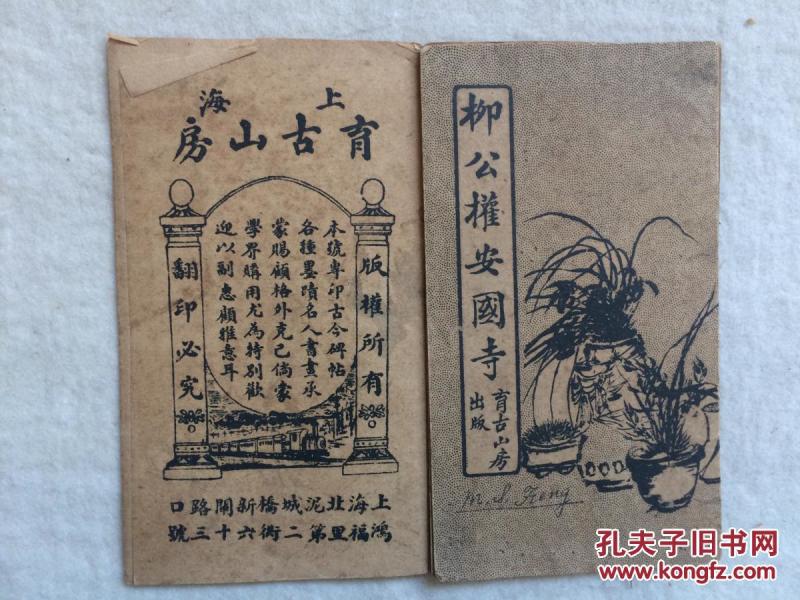 上海
育古山房
版權所有
本號專印古今碑帖
各種墨蹟名人書畫承
蒙賜顧格外克己倘蒙
學界購用尤為特別歡
迎以副惠顧雅意耳
翻印必究
上海北泥城橋新閘路口
鴻福里第二街六十三號
柳公權安國寺
育古山房
出版
孔夫子旧书网
www.kongfz.com